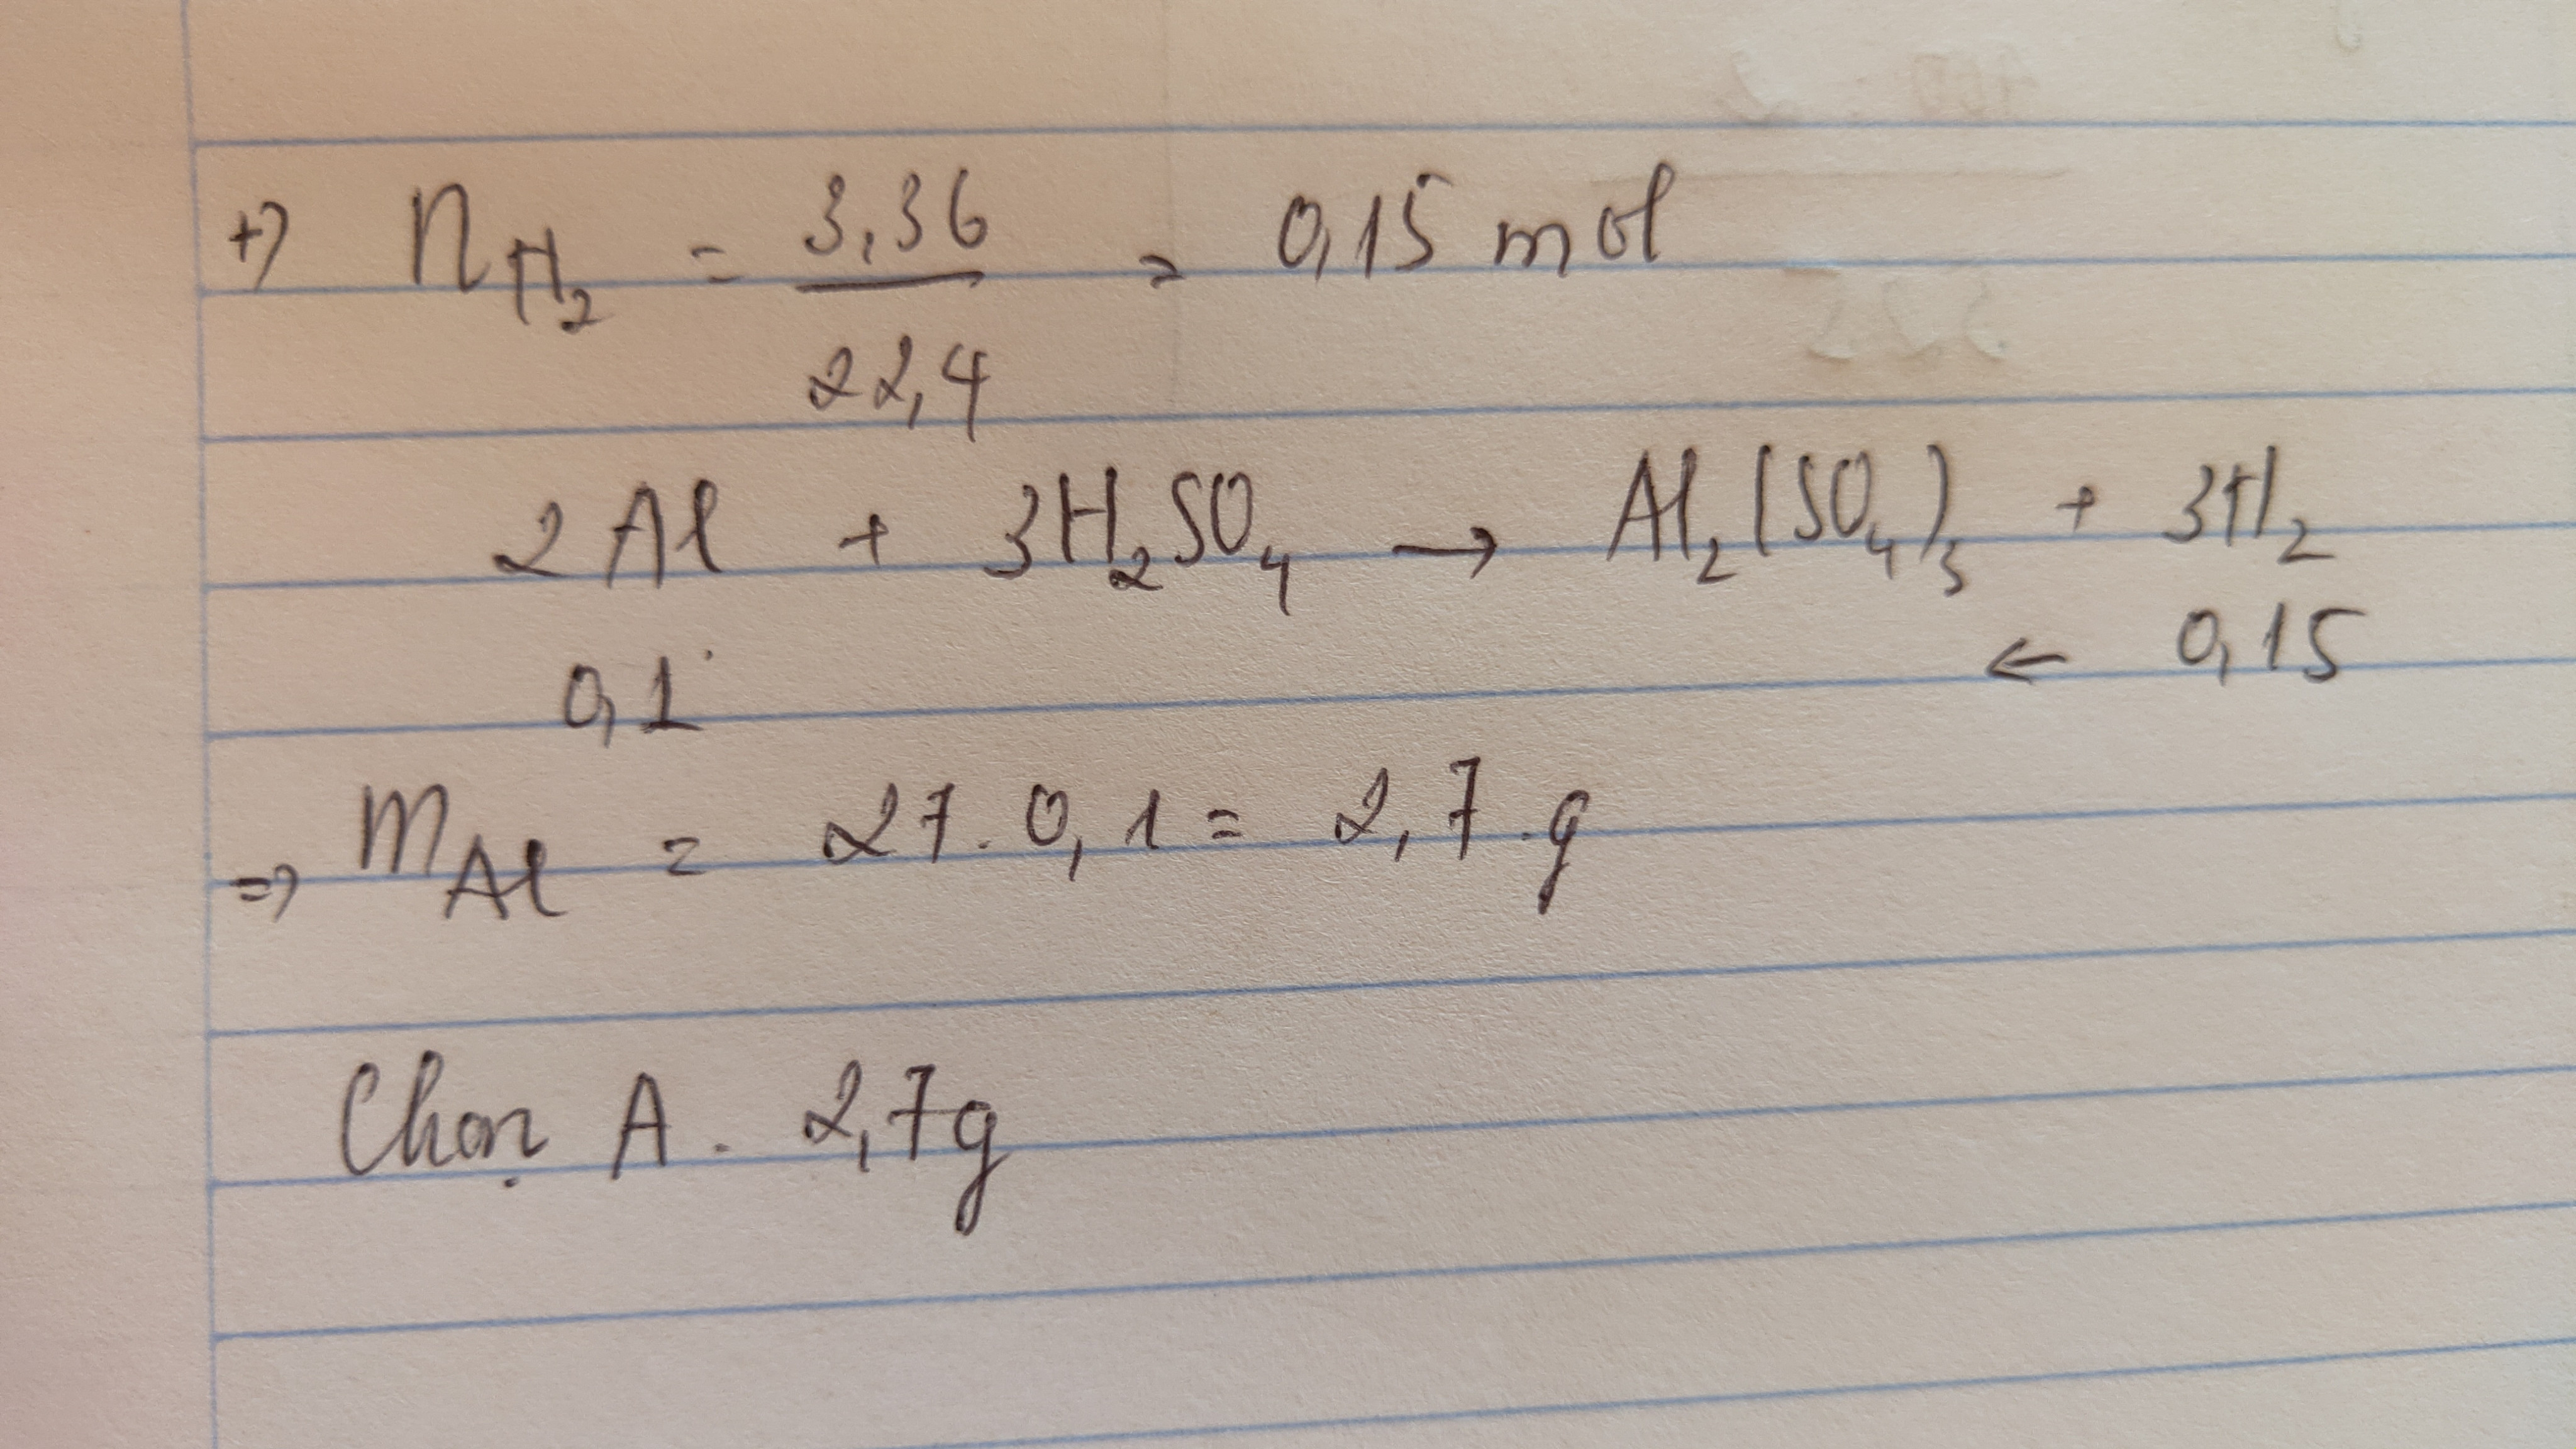 +) n_H₂ = 3,36 / 22,4 = 0,15 mol
2Al + 3H₂SO₄ → Al₂(SO₄)₃ + 3H₂
0,1 ← 0,15
=> m_Al = 27. 0,1 = 2,7.g
Chọn A. 2,7g